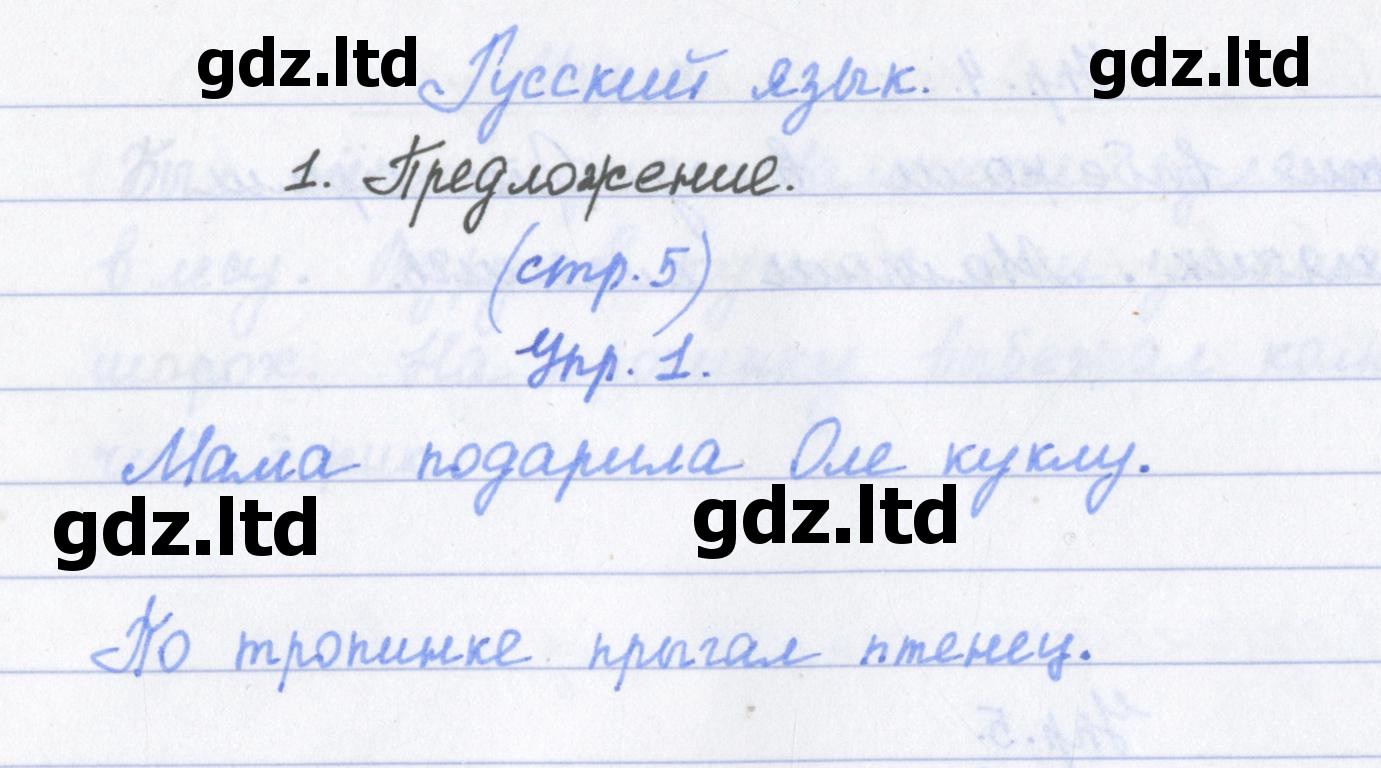 gdz.ltd Русский язык. gdz.ltd
1. Предложение.
(стр. 5)
Упр. 1.
Мама подарила Оле куклу.
gdz.ltd gdz.ltd
По тропинке прыгал птенец.